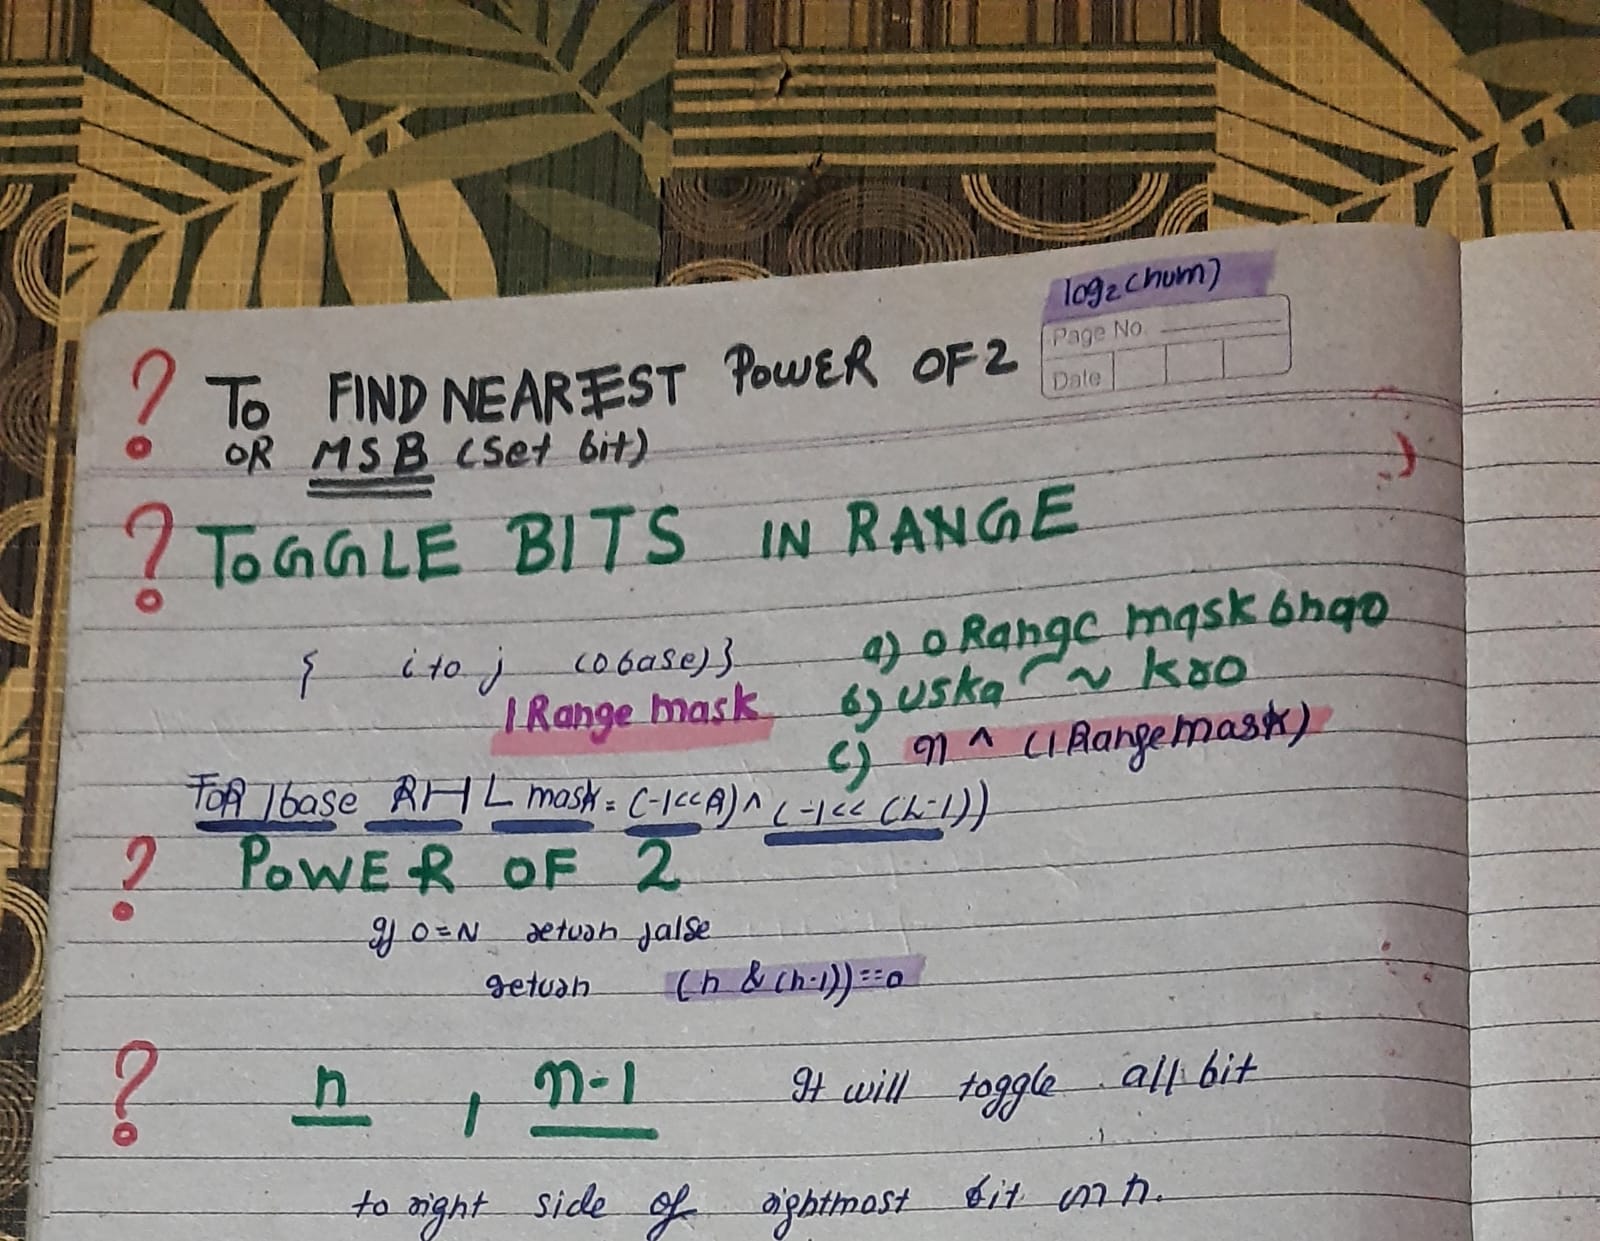 log₂(num)
Page No.
Date
? To FIND NEAREST POWER OF 2
OR MSB (Set bit)
? TOGGLE BITS IN RANGE
{ i to j (0 base)}
a) 0 Range mask bnao
1 Range mask
b) uska ~ kro
c) n ^ (1 Rangemask)
FOR 1base R H L mask = (-1<<R) ^ (-1<< (L-1))
? POWER OF 2
If 0=N return false
return (n & (n-1))==0
? n , n-1 It will toggle all bit
to right side of rightmost bit in n.